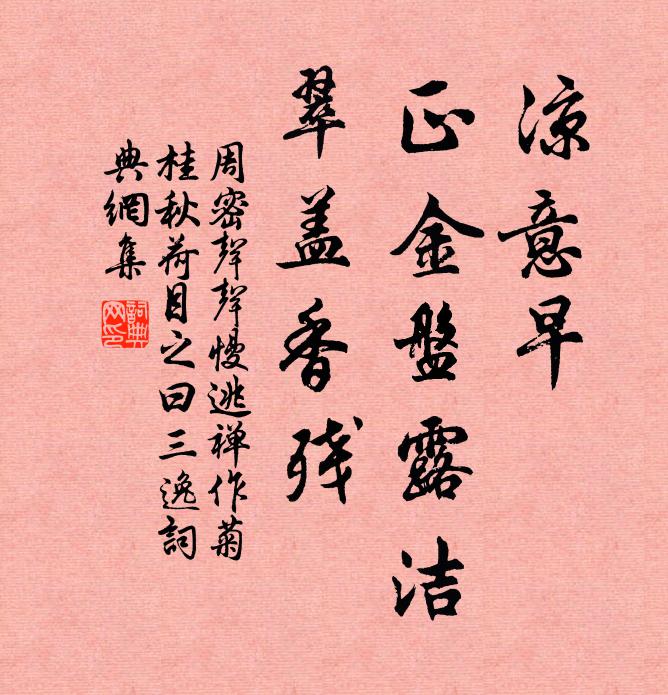 凉意早
正金盤露洁
翠盖香残
周密聲聲慢逃禅作菊
桂秋荷目之曰三逸詞
典網集
詞典
网印